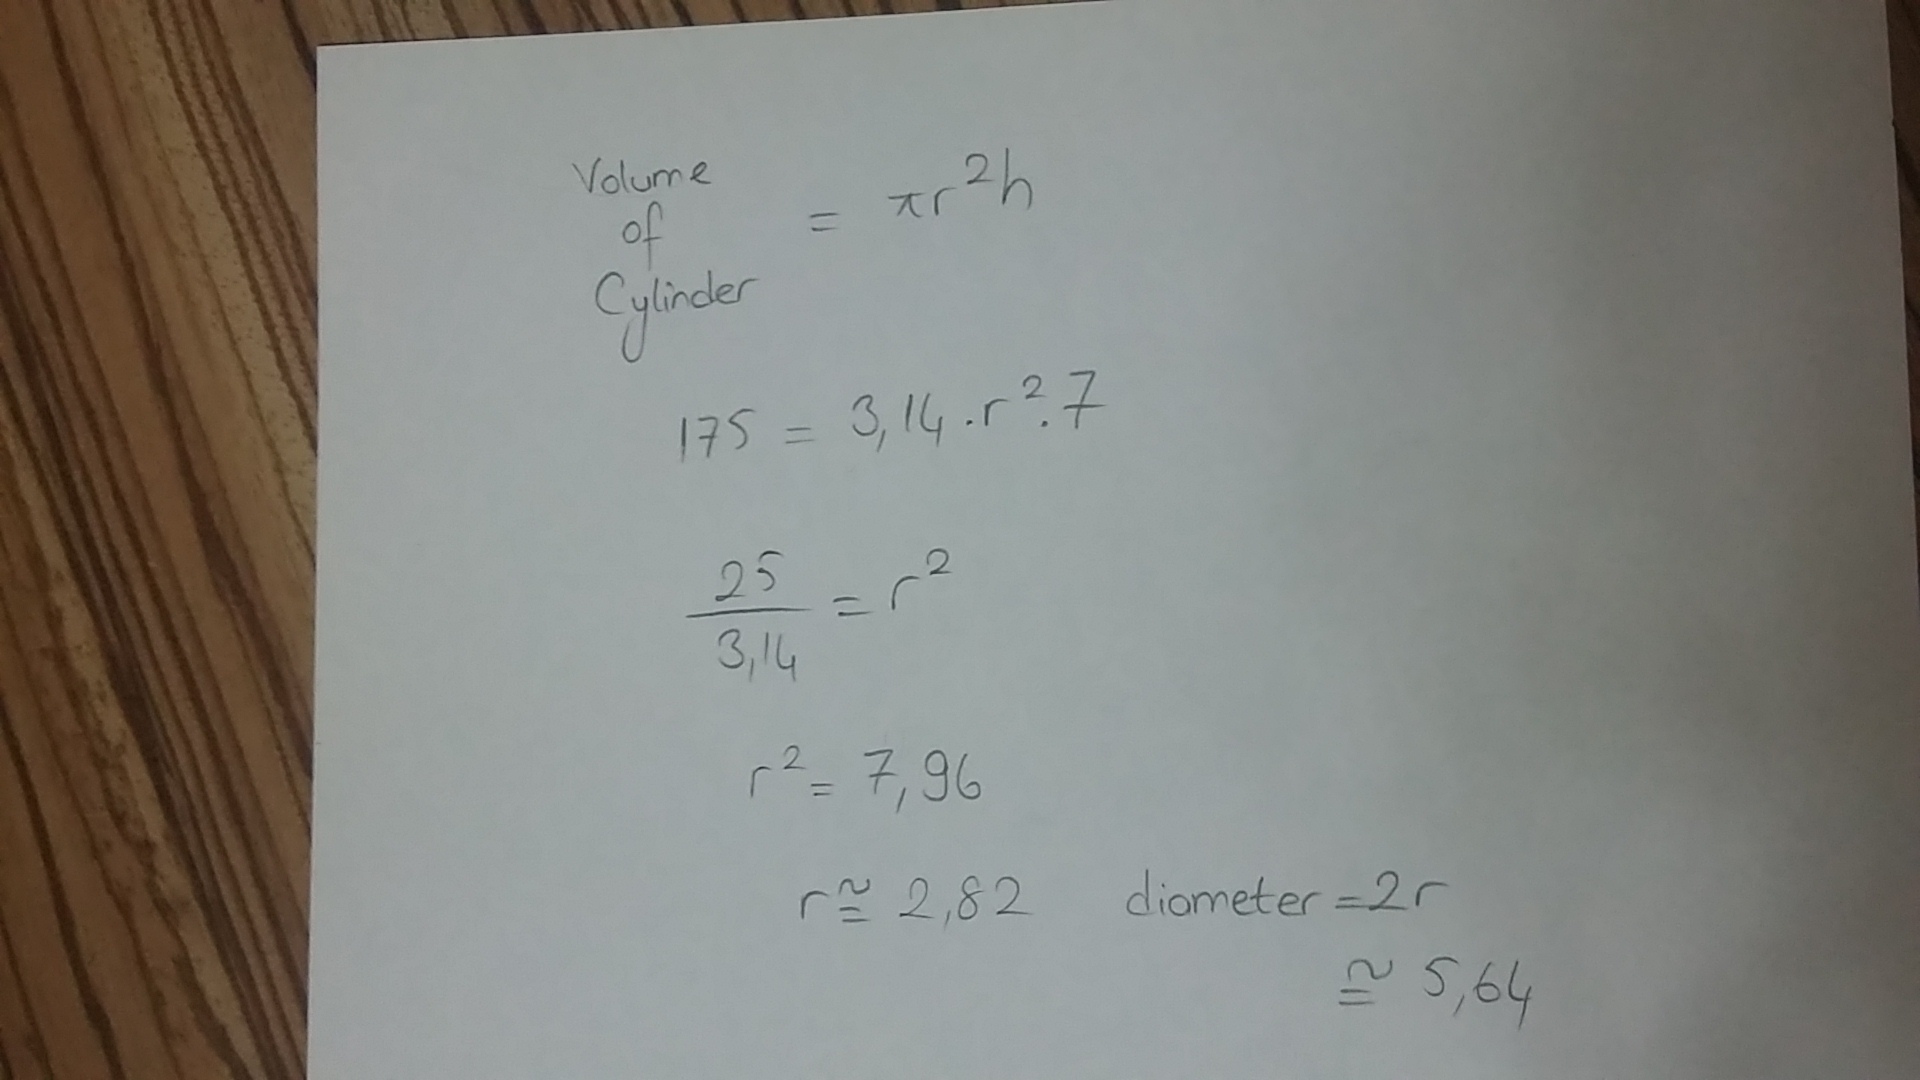 Volume
of
Cylinder = πr²h
175 = 3,14 . r² . 7
25
3,14 = r²
r² = 7,96
r ≅ 2,82 diameter = 2r
≅ 5,64